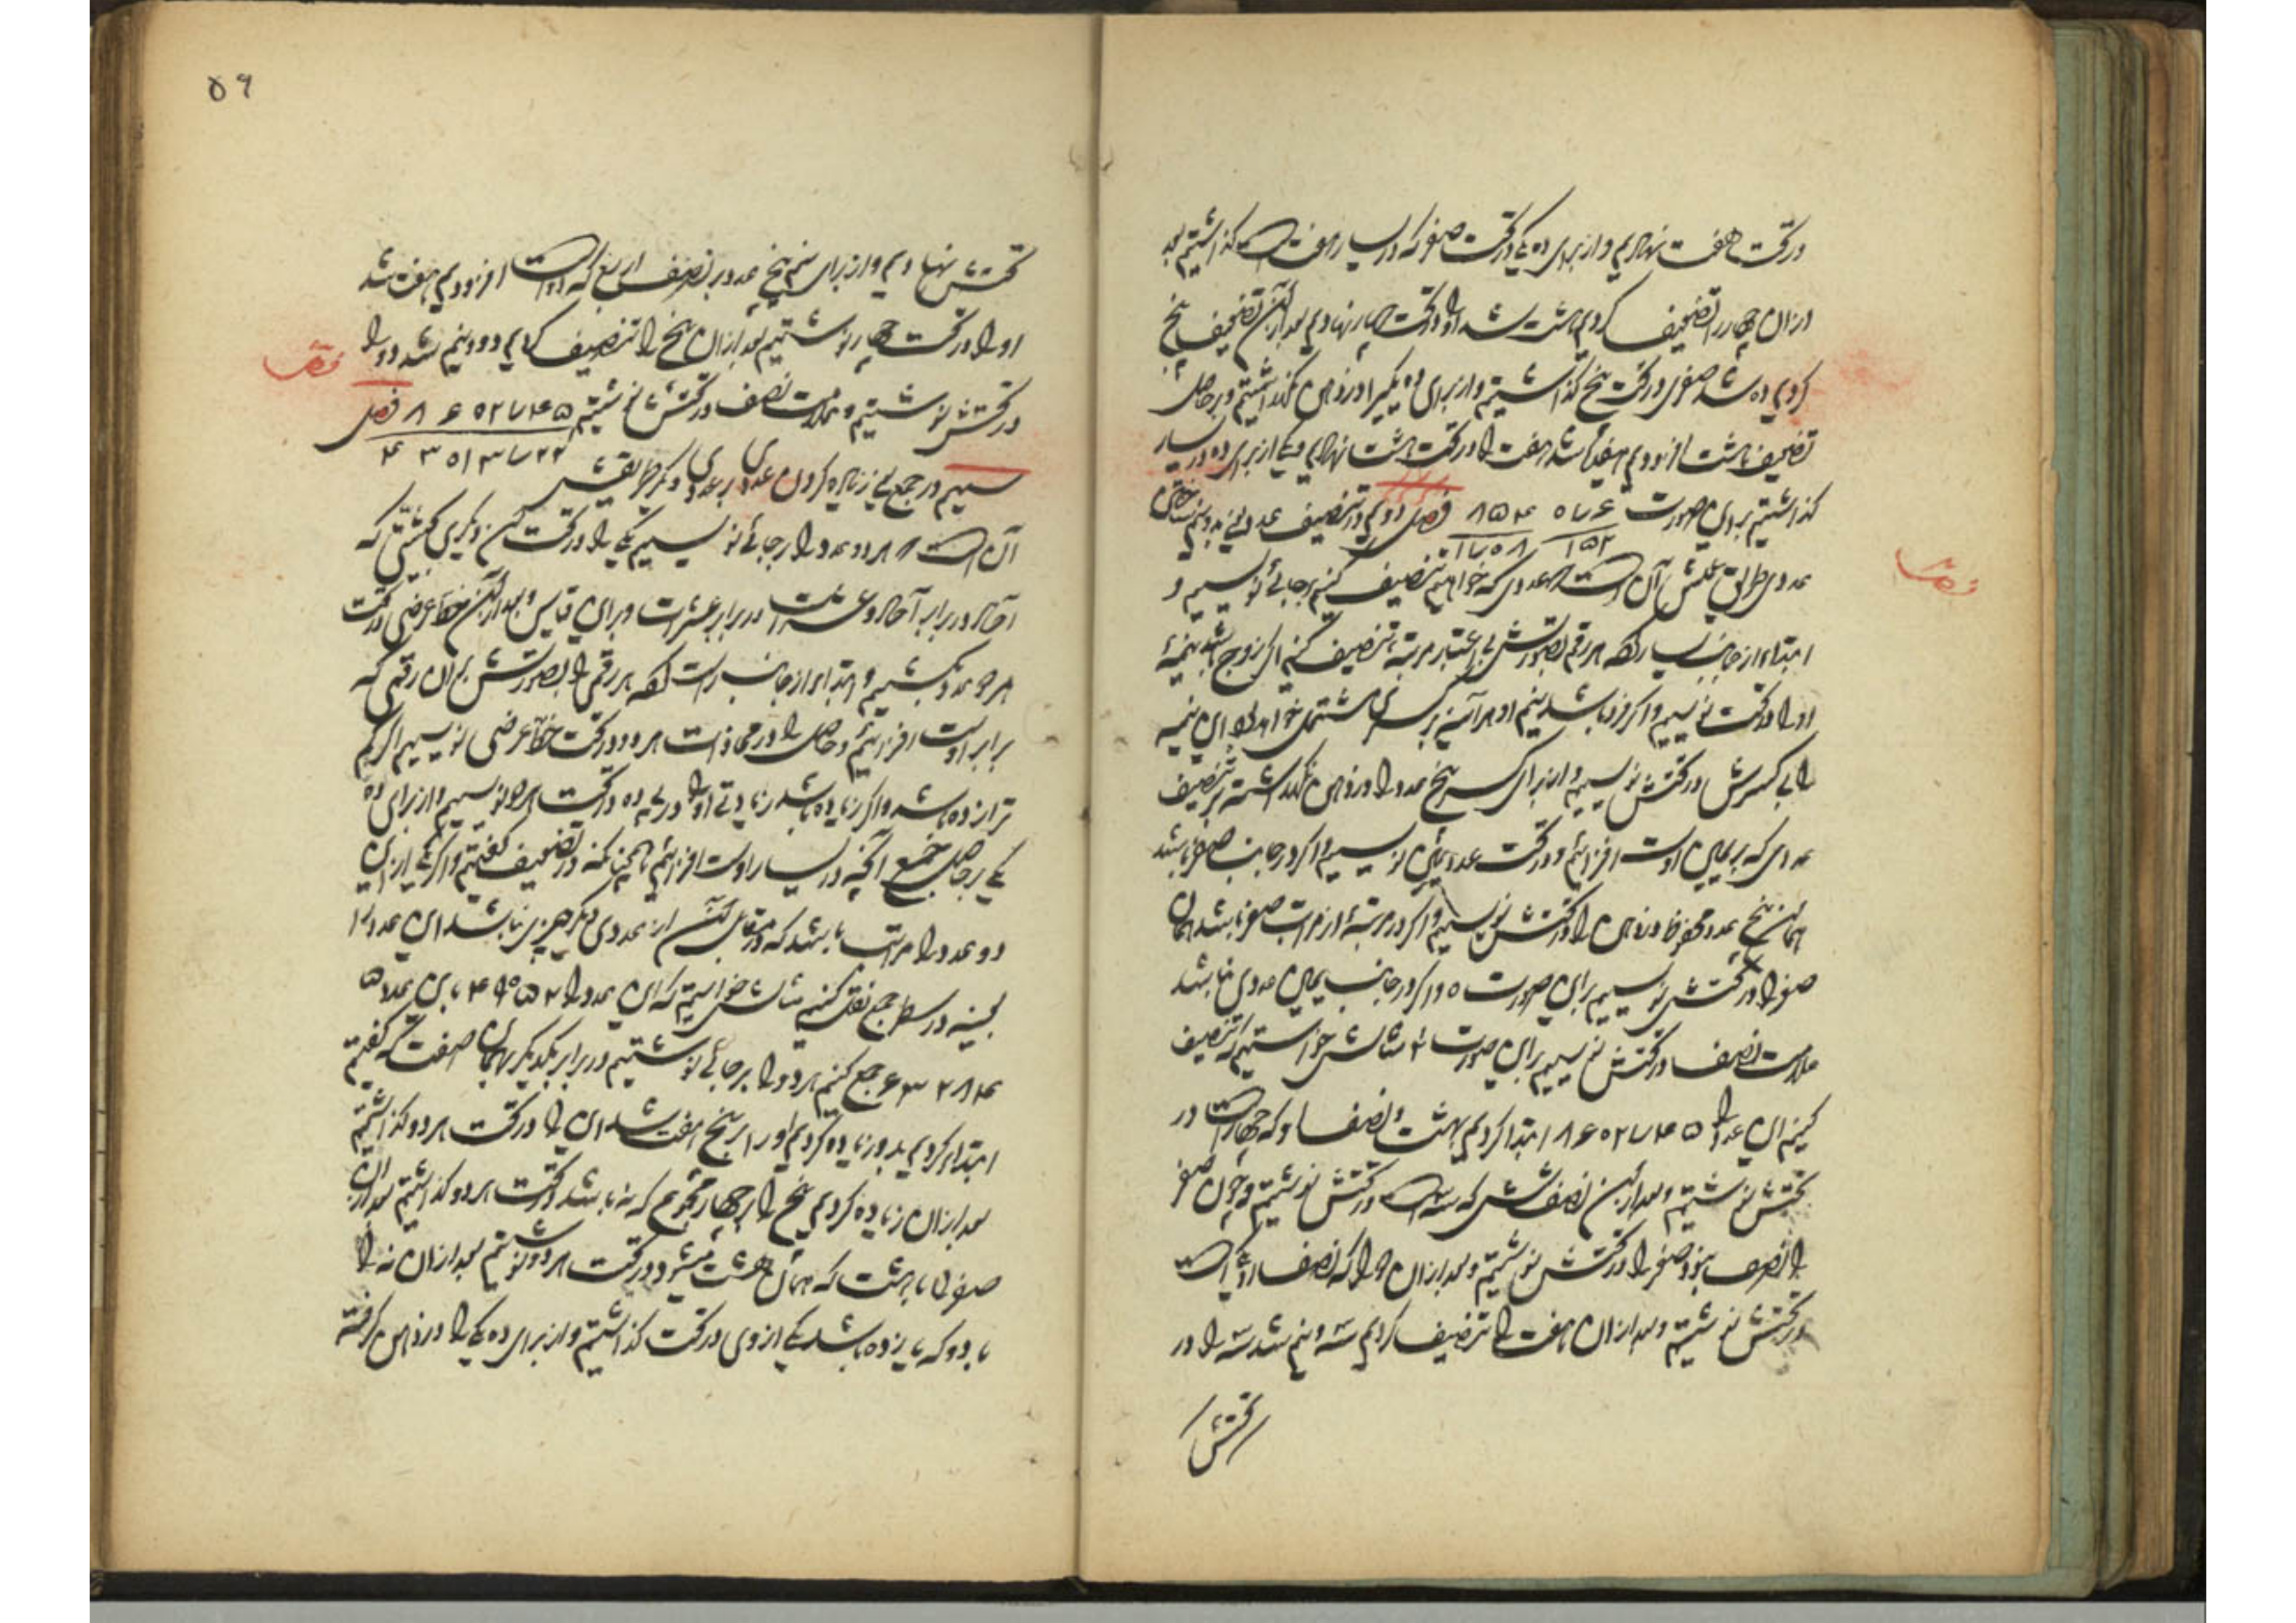 در تحت هفت نهادیم و از برای ده یکی در تحت صفر که در یسار هفت است گذاشتیم بعد
از آن چهار را تضعیف کردیم هشت شد او را در تحت چهار نهادیم بعد از این تضعیف پنج
کردیم ده شد صفری در تحت پنج گذاشتیم و از برای ده یکی را در ذهن نگه داشتیم و بر حاصل
تضعیف هشت افزودیم هفده شد هفت را در تحت هشت نهادیم و یکی از برای ده در یسار
گذاشتیم برین صورت ۸۵۴۰۷۶ ۱۷۰۸۱۵۲ فصل دوم در تنصیف عدد یعنی بدو نیم ساختن
عددی طریق عملش آن است که عددی که خواهیم تنصیف کنیم بر جائی نویسیم و
ابتداء از جانب یسار کرده هر رقم بصورتش بی اعتبار مرتبه تنصیف کنیم اگر زوج باشد نیمهٔ
او را در تحت نویسیم و اگر فرد باشد نیم او هر آینه بر کسری مشتمل خواهد بود این نیمه
را بی کسرش در تحتش نویسیم و از برای کسر پنج عدد را در ذهن نگه داشته بر تنصیف
عددی که بر یمین اوست افزائیم و در تحت عدد یمین نویسیم و اگر در جانب صفر باشد
همان پنج عدد محفوظ در ذهن را در تحتش نویسیم و اگر در مرتبهٔ از مراتب صفر باشد همان
صفر را در تحتش نویسیم برین صورت ۰ و اگر در جانب یمین عددی نباشد
علامت نصف در تحتش نویسیم برین صورت ۲ مثالش خواستیم که تنصیف
کنیم این عدد را ۸۶۰۲۷۴۵ ابتدا کردیم بهشت و نصف او که چهار است در
تحتش نوشتیم و بعد از این نصف شش که سه است در تحتش نوشتیم و چون صفر
را نصف نبود صفر را در تحتش نوشتیم و بعد از آن دو را که نصف او یکی است
در تحتش نوشتیم و بعد از آن هفت را تنصیف کردیم سه و نیم شد سه را در
تحتش
۵۹
تحتش نهادیم و از برای نیم پنج عدد بر نصف اربع که دو است افزودیم هفت شد
او را در تحت چهار نوشتیم بعد از آن پنج را تنصیف کردیم دو و نیم شد دو را
در تحتش نوشتیم و علامت نصف در تحتش نوشتیم ۸۶۰۲۷۴۵ ۴۳۰۱۳۷۲۲ فصل
سیم در جمع یعنی زیاده کردن عددی بر عددی دیگر طریقش
آن است که هر دو عدد را بر جائی نویسیم یکی را در تحت آن دیگری بحیثیتی که
آحاد در برابر آحاد و عشرات در برابر عشرات و برین قیاس و بعد از این خط عرضی در تحت
هر دو عدد بکشیم و ابتدا از جانب راست کرده هر رقمی را بصورتش بر آن رقمی که
برابر اوست افزائیم و حاصل را در محاذات هر دو در تحت خط عرضی نویسیم اگر کم
تر از ده باشد و اگر زیاده باشد زیادتی او را بر ده در تحت او نویسیم و از برای ده
یکی بر حاصل جمع آنچه در یسار اوست افزائیم همچنانکه در تضعیف گفتیم و اگر یکی از این
دو عدد را مراتب باشد که در مقابل آن از عددی دیگر چیزی نباشد این عدد را
بعینه در سطر جمع نقل کنیم مثالش خواستیم که این عدد را ۴۹۰۵۲ باین عدد
۶۳۲۸۴ جمع کنیم هر دو را بر جائی نوشتیم در برابر یکدیگر بهمان صفت که گفتیم
ابتداء کردیم بدو زیاده کردیم او را بر پنج هفت شد این را در تحت هر دو گذاشتیم
بعد از آن زیاده کردیم پنج را بر چهار مجموع که نه باشد در تحت هر دو گذاشتیم بعد از آن
صفر را با هشت که همان هشت میشود در تحت هر دو نوشتیم بعد از آن نه را
با دو که یازده باشد یکی از وی در تحت گذاشتیم و از برای ده یکی را در ذهن گرفته